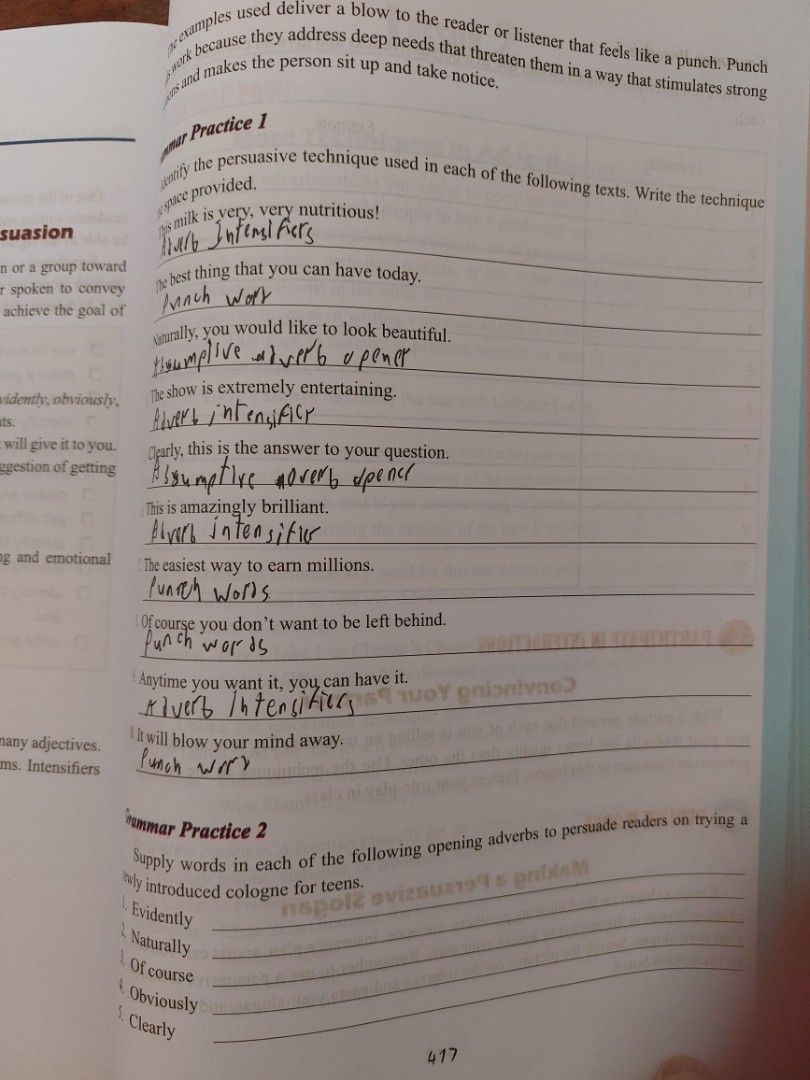 examples used deliver a blow to the reader or listener that feels like a punch. Punch
work because they address deep needs that threaten them in a way that stimulates strong
and makes the person sit up and take notice.
Practice 1
the persuasive technique used in each of the following texts. Write the technique
space provided.
milk is very, very nutritious!
Adverb Intensifiers
The best thing that you can have today.
Punch wor
Naturally, you would like to look beautiful.
Assumptive adverb opener
The show is extremely entertaining.
Adverb intensifier
Clearly, this is the answer to your question.
Assumptive adverb opener
This is amazingly brilliant.
Adverb intensifier
The easiest way to earn millions.
Punch Words
Of course you don't want to be left behind.
Punch words
Anytime you want it, you can have it.
Adverb Intensifiers
It will blow your mind away.
Punch word
Grammar Practice 2
Supply words in each of the following opening adverbs to persuade readers on trying a
newly introduced cologne for teens.
1. Evidently
2. Naturally
3. Of course
4. Obviously
5. Clearly
417
suasion
n or a group toward
r spoken to convey
achieve the goal of
vidently, obviously,
ts.
will give it to you.
ggestion of getting
ng and emotional
many adjectives.
ms. Intensifiers